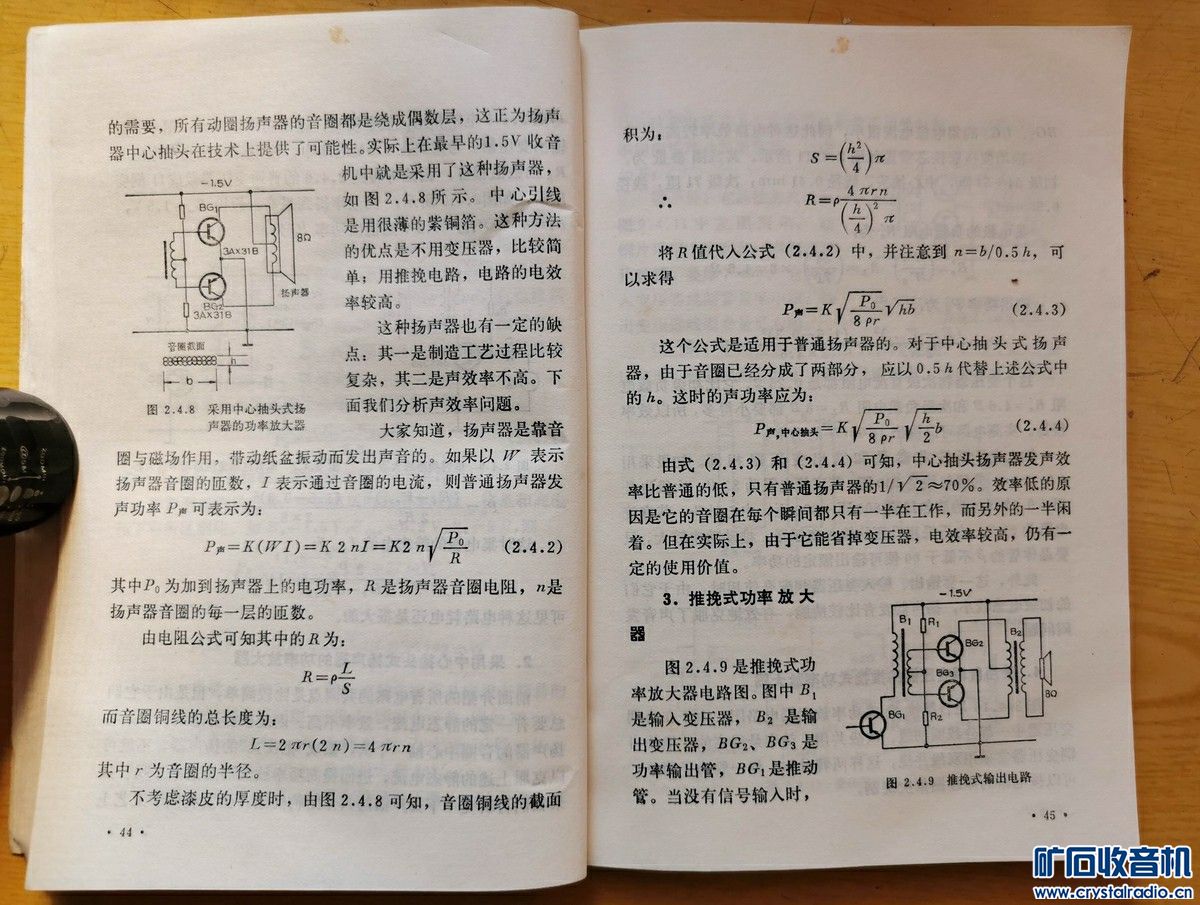 的需要，所有动圈扬声器的音圈都是绕成偶数层，这正为扬声
器中心抽头在技术上提供了可能性。实际上在最早的1.5V 收音
机中就是采用了这种扬声器，
如图2.4.8所示。中心引线
是用很薄的紫铜箔。这种方法
的优点是不用变压器，比较简
单；用推挽电路，电路的电效
率较高。
这种扬声器也有一定的缺
点：其一是制造工艺过程比较
复杂，其二是声效率不高。下
面我们分析声效率问题。
大家知道，扬声器是靠音
－1.5V
BG1
3AX31B
8Ω
扬声器
BG2
3AX31B
音圈截面
h
b
图 2.4.8 采用中心抽头式扬
声器的功率放大器
圈与磁场作用，带动纸盆振动而发出声音的。如果以 W 表示
扬声器音圈的匝数，I 表示通过音圈的电流，则普通扬声器发
声功率 P声 可表示为：
P声=K(WI)=K 2 nI=K2 n√(P0/R) (2.4.2)
其中P0 为加到扬声器上的电功率，R 是扬声器音圈电阻，n是
扬声器音圈的每一层的匝数。
由电阻公式可知其中的R为：
R=ρL/S
而音圈铜线的总长度为：
L=2 πr(2 n)=4 πrn
其中 r 为音圈的半径。
不考虑漆皮的厚度时，由图 2.4.8 可知，音圈铜线的截面
· 44 ·
积为：
S=(h²/4)π
∴ R=ρ 4 πrn/((h/4)² π)
将R值代入公式（2.4.2）中，并注意到 n=b/0.5 h，可
以求得
P声=K√(P0/8 ρr) √hb (2.4.3)
这个公式是适用于普通扬声器的。对于中心抽头式扬声
器，由于音圈已经分成了两部分，应以0.5 h 代替上述公式中
的 h。这时的声功率应为：
P声,中心抽头=K√(P0/8 ρr) √(h/2) b (2.4.4)
由式（2.4.3）和（2.4.4）可知，中心抽头扬声器发声效
率比普通的低，只有普通扬声器的1/√2≈70%。效率低的原
因是它的音圈在每个瞬间都只有一半在工作，而另外的一半闲
着。但在实际上，由于它能省掉变压器，电效率较高，仍有一
定的使用价值。
3．推挽式功率放大
器
图 2.4.9 是推挽式功
率放大器电路图。图中 B1
是输入变压器，B2 是输
出变压器，BG2、BG3 是
功率输出管，BG1是推动
管。当没有信号输入时，
－1.5V
B1
R1
BG2
B2
BG3
8Ω
BG1
R2
图 2.4.9 推挽式输出电路
· 45 ·
矿石收音机
www.crystalradio.cn